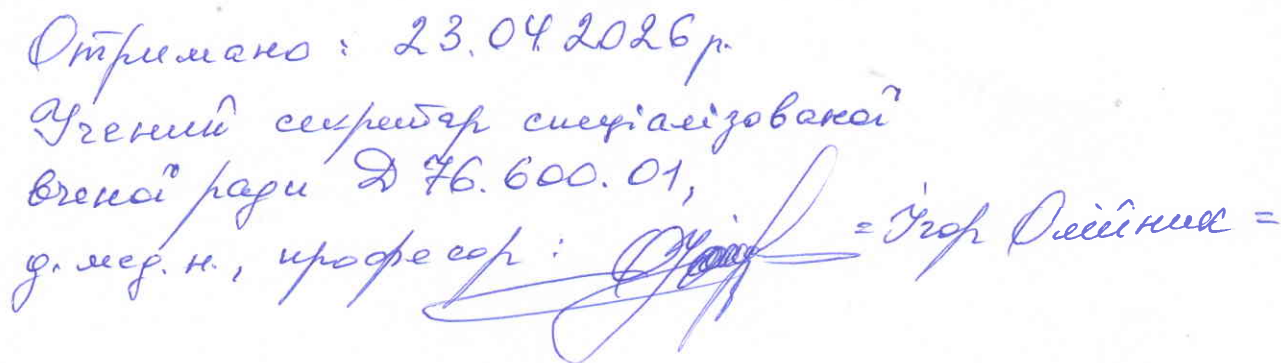 Отримано: 23.04.2026 р.
Учений секретар спеціалізованої
вченої ради Д 76.600.01,
д. мед. н., професор: =Ігор Олійник=